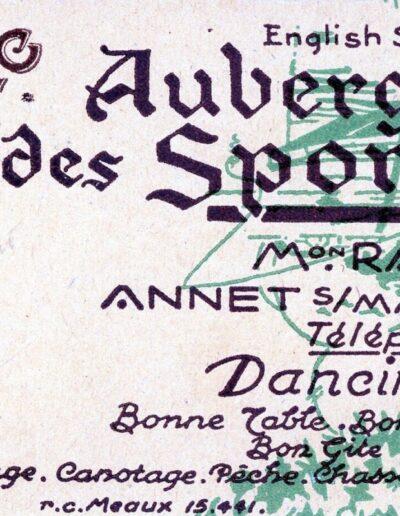 English S
Auberg
des Spor
Mon RA
ANNET S/MA
Télép
Dancin
Bonne Table . Bon
Bon Gîte
ge . Canotage . Pêche . Chasse
r.c. Meaux 15.441.